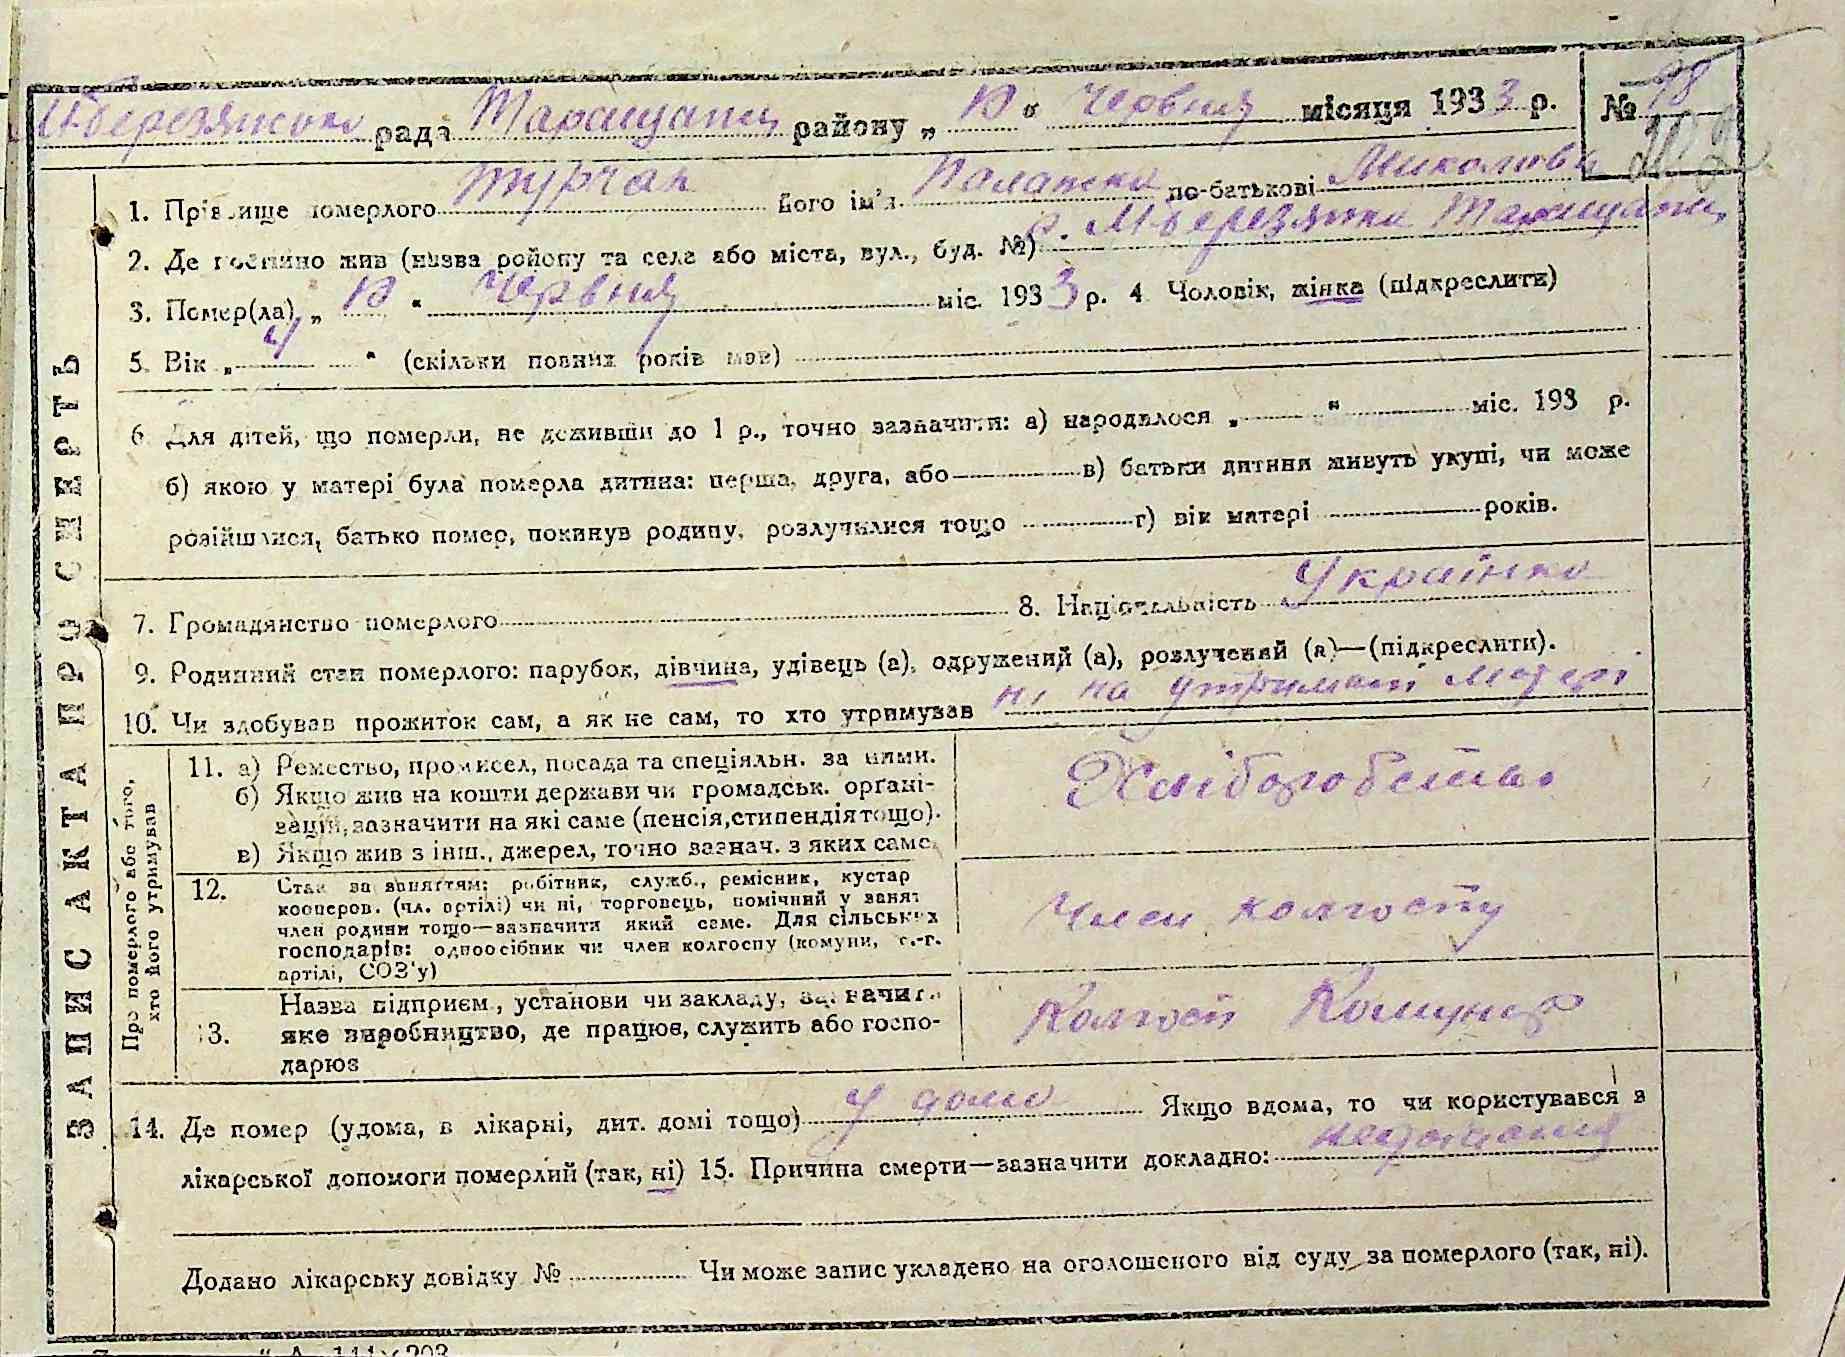 М-березянська рада Таращанськ району „ 10 “ Червня місяця 1933 р. № 98
1. Прізвище померлого Турчак його ім'я Палажка по-батькові Миколова
2. Де постійно жив (назва району та села або міста, вул., буд. №) с. М березянка Таращанськ
3. Помер(ла) „ 10 “ Червня міс. 1933 р. 4 Чоловік, жінка (підкреслити)
5. Вік „ 4 “ (скільки повних років мав)
6. Для дітей, що померли, не доживши до 1 р., точно зазначити: а) народилося „ “ міс. 193 р.
б) якою у матері була померла дитина: перша, друга, або в) батьки дитини живуть укупі, чи може
розійшлися, батько помер, покинув родину, розлучилися тощо г) вік матері років.
7. Громадянство померлого 8. Національність Українка
9. Родинний стан померлого: парубок, дівчина, удівець (а), одружений (а), розлучений (а)—(підкреслити).
10. Чи здобував прожиток сам, а як не сам, то хто утримував ні на утримані матері
ЗАПИС АКТА ПРО СМЕРТЬ
Про померлого або того,
хто його утримував
11. а) Ремество, промисел, посада та спеціяльн. за ними.
б) Якщо жив на кошти держави чи громадськ. органі-
зацій, зазначити на які саме (пенсія, стипендія тощо).
в) Якщо жив з інш., джерел, точно зазнач. з яких саме.
Хліборобство
12. Стан за заняттям: робітник, служб., ремісник, кустар
кооперов. (чл. артілі) чи ні, торговець, помічний у занят
член родини тощо—зазначити який саме. Для сільських
господарів: одноосібник чи член колгоспу (комуни, с.-г.
артілі, СОЗ'у)
Член колгоспу
13. Назва підприєм., установи чи закладу, зазначити
яке виробництво, де працює, служить або госпо-
дарює
Колгосп Комунар
14. Де помер (удома, в лікарні, дит. домі тощо) У дома Якщо вдома, то чи користувався з
лікарської допомоги померлий (так, ні) 15. Причина смерти—зазначити докладно:
Додано лікарську довідку № Чи може запис укладено на оголошеного від суду за померлого (так, ні).